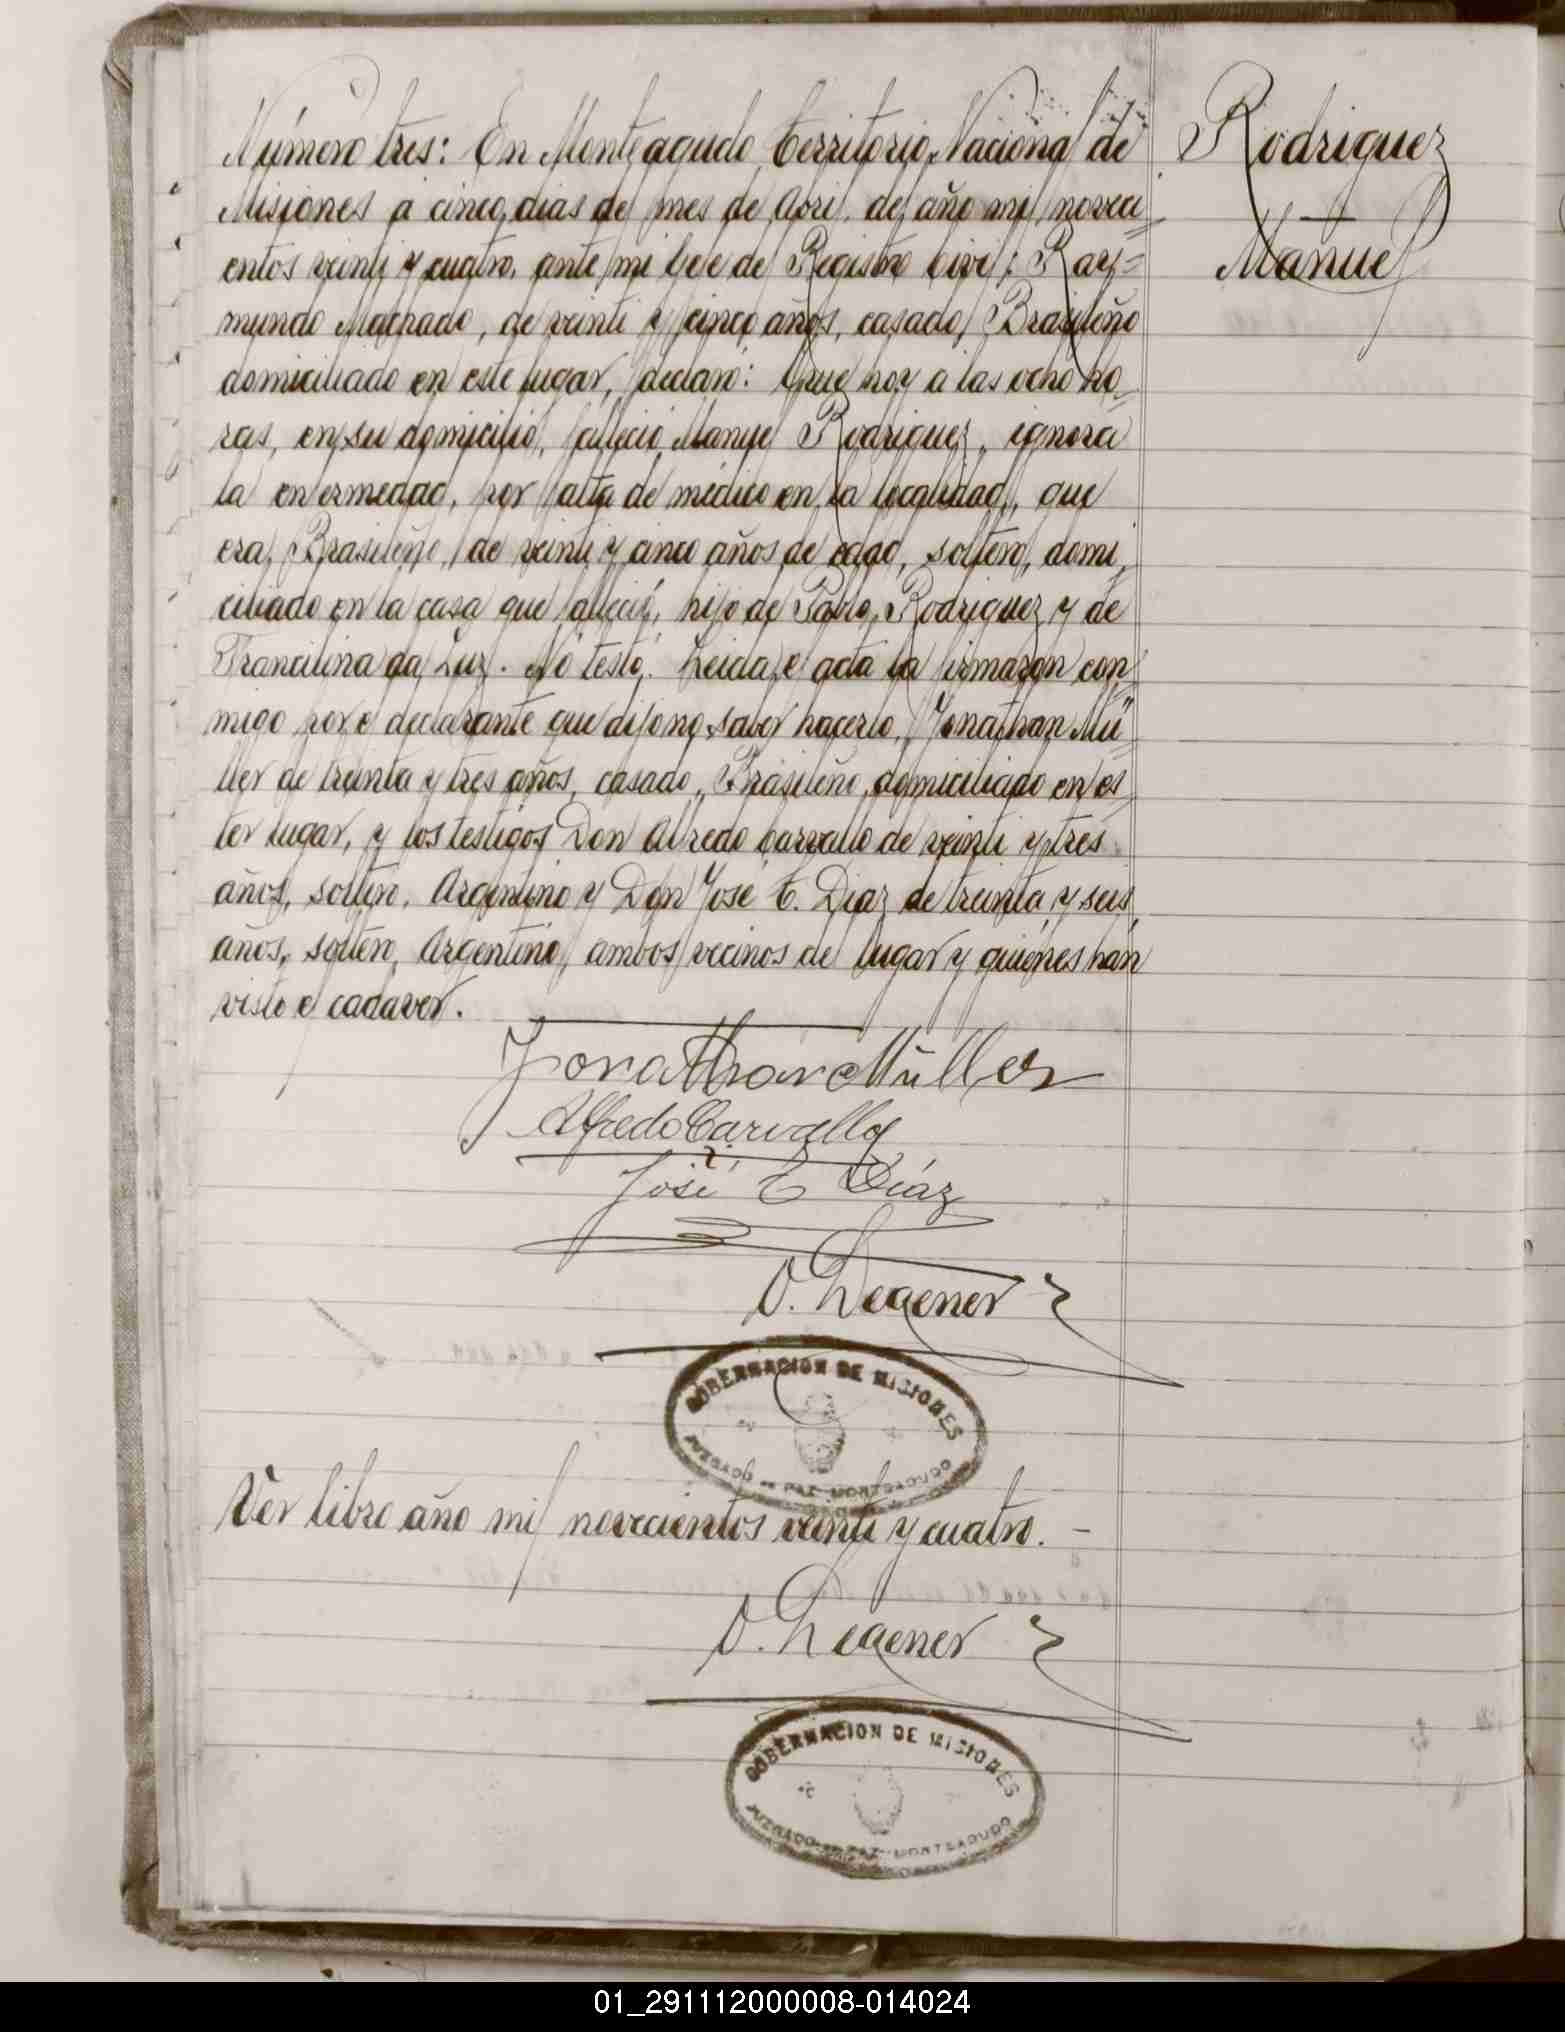 Número tres: En Monteagudo, Territorio Nacional de
Misiones a cinco dias del mes de Abril del año mil noveci=
entos veinti y cuatro, ante mi Gefe del Registro Civil; Ray=
mundo Machado, de veinti y cinco años, casado, Brasileño
domiciliado en este lugar, declaró: Que hoy a las ocho ho=
ras, en su domicilio, falleció Manuel Rodriguez, ignora
la enfermedad, por falta de médico en la localidad, que
era Brasileño, de veinti y cinco años de edad, soltero, domi=
ciliado en la casa que falleció, hijo de Pablo Rodriguez y de
Francilina da Luz. No testó. Leida el acta la firmaron con=
migo por el declarante que dijo no saber hacerlo, Jonathan Mü=
ller de treinta y tres años, casado, Brasileño, domiciliado en es=
te lugar, y los testigos Don Alfredo Carvallo de veinti y tres
años, soltero, Argentino y Don José E. Diaz de treinta y seis
años, soltero, Argentino, ambos vecinos del lugar y quiénes hán
visto el cadaver.
Rodriguez
—
Manuel
Jonathan Müller
Alfredo Carvallo
José E Díaz
O. Degener
GOBERNACION DE MISIONES
JUZGADO DE PAZ MONTEAGUDO
Ver libro año mil novecientos veinti y cuatro. -
O. Degener
GOBERNACION DE MISIONES
JUZGADO DE PAZ MONTEAGUDO
01_291112000008-014024